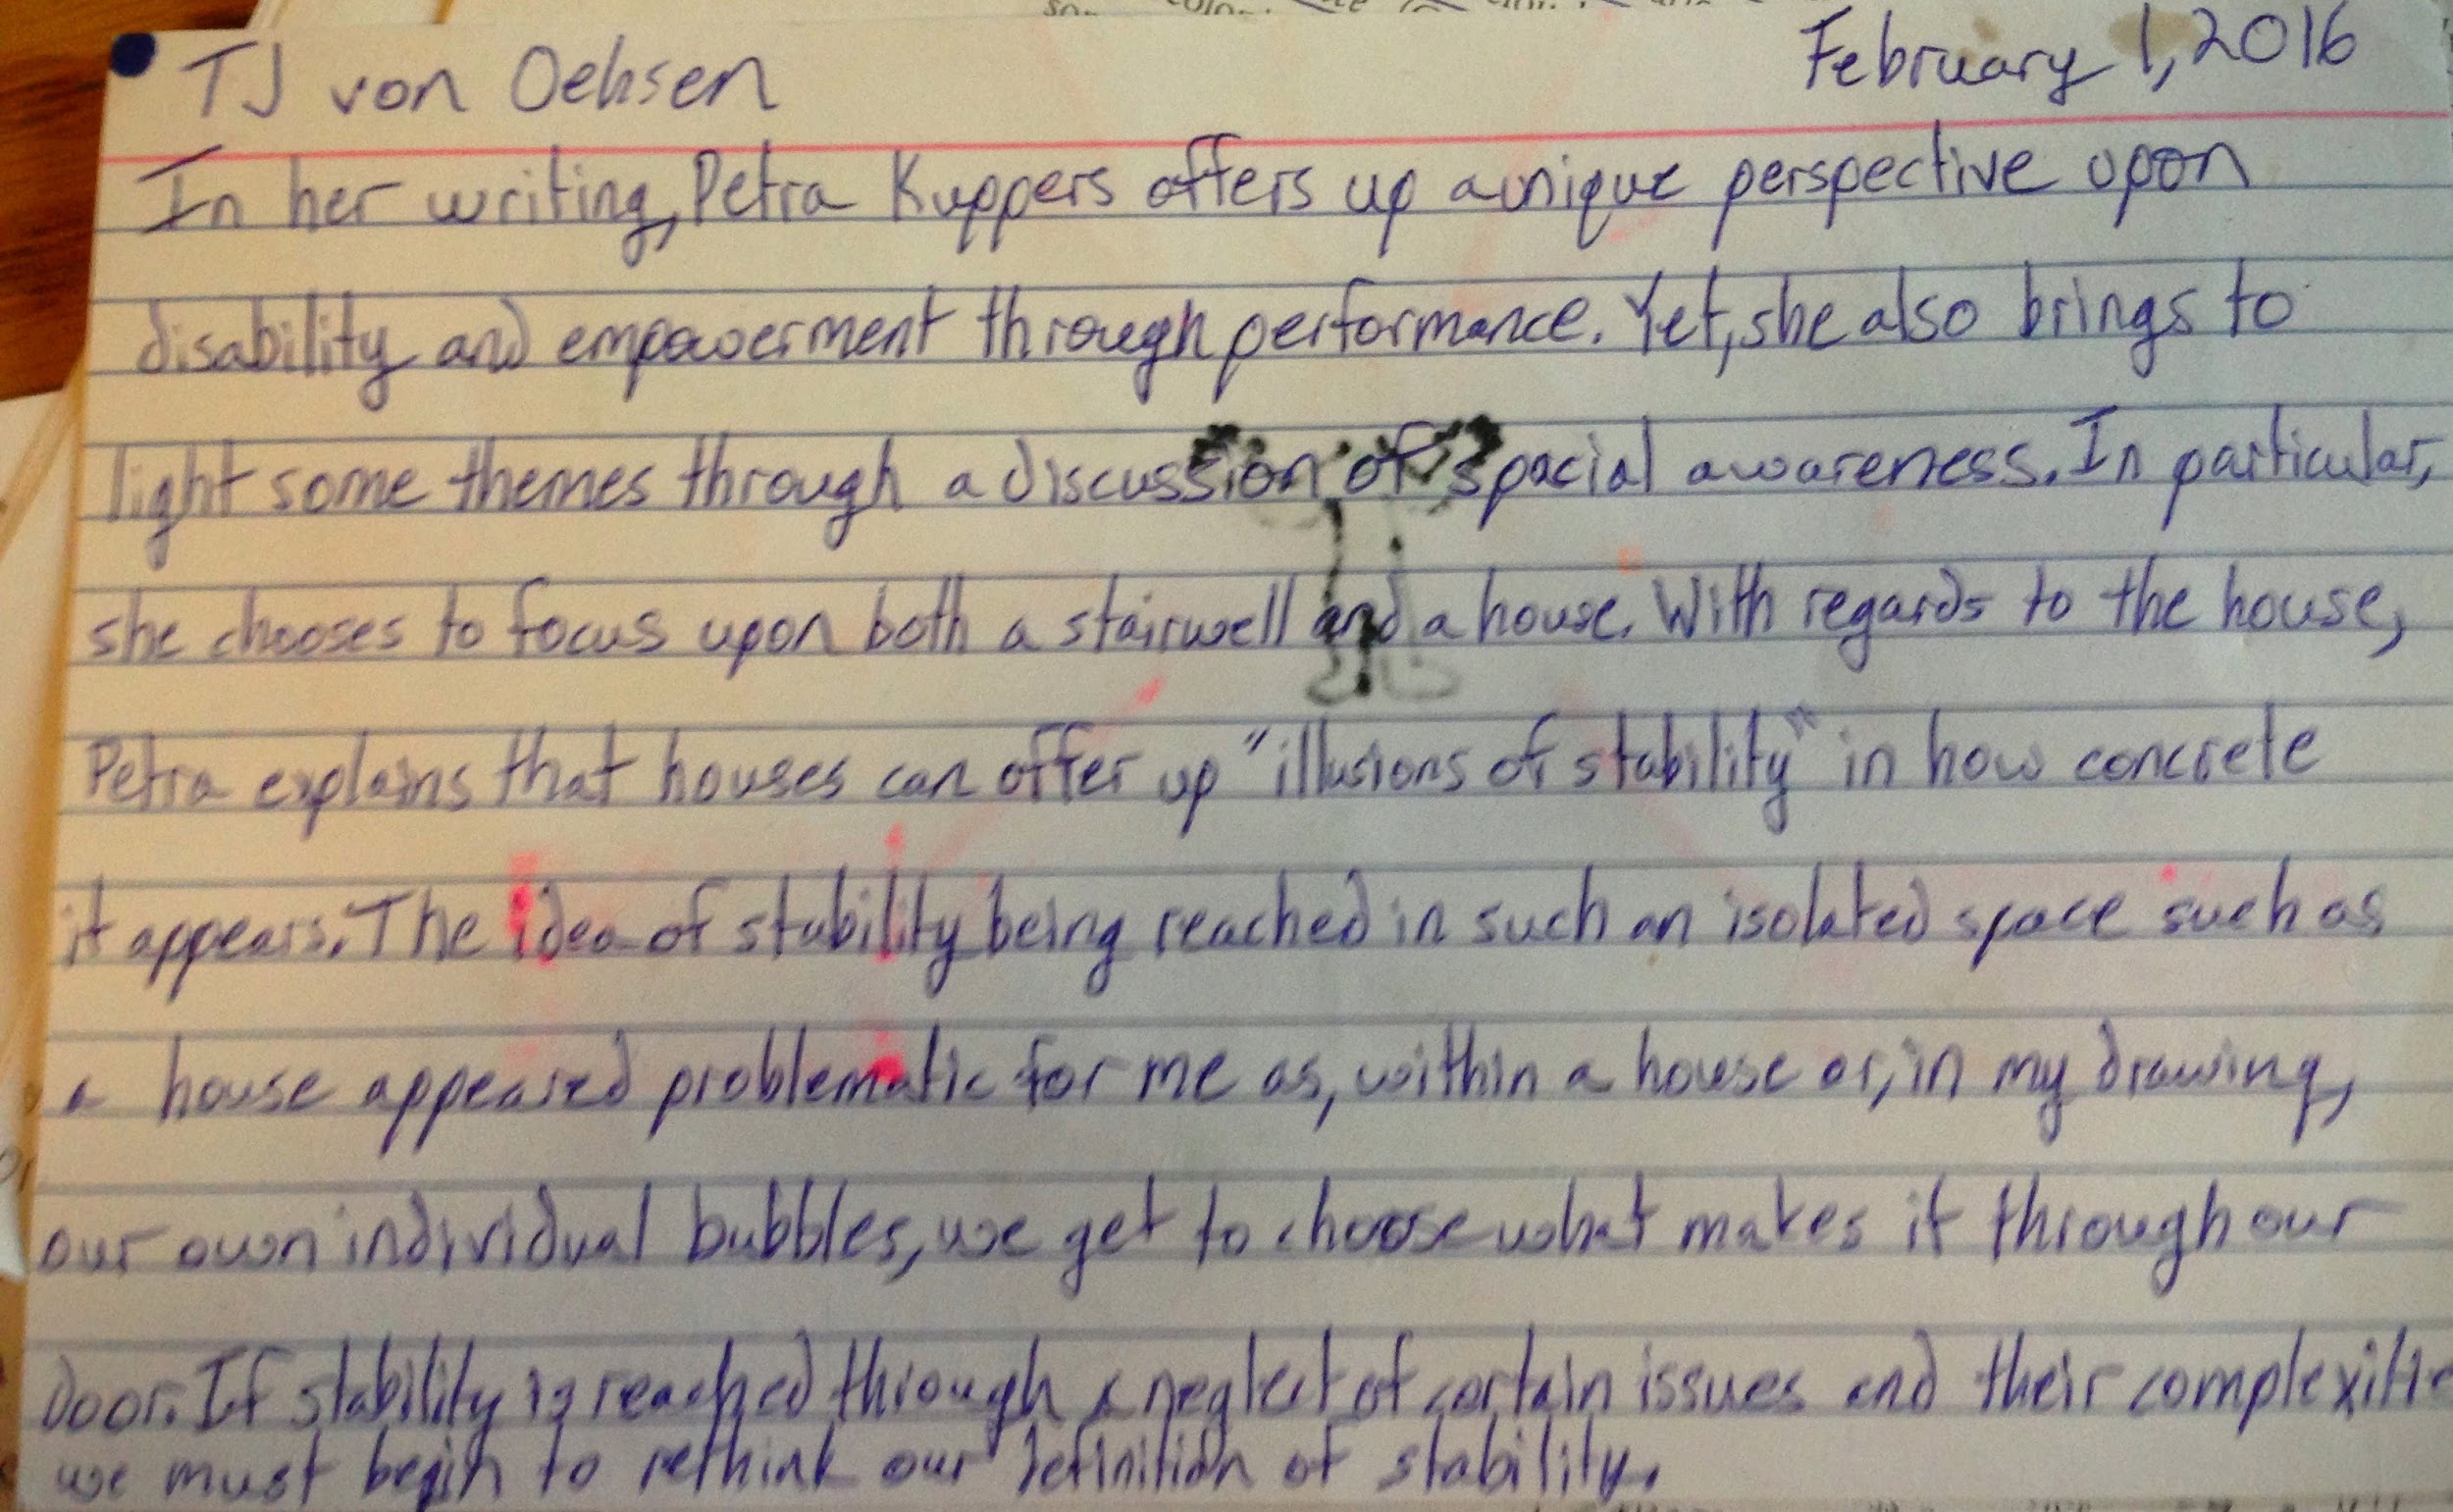 TJ von Oehsen February 1, 2016
In her writing, Petra Kuppers offers up a unique perspective upon
disability and empowerment through performance. Yet, she also brings to
light some themes through a discussion of spacial awareness. In particular,
she chooses to focus upon both a stairwell and a house. With regards to the house,
Petra explains that houses can offer up "illusions of stability" in how concrete
it appears. The idea of stability being reached in such an isolated space such as
a house appeared problematic for me as, within a house or, in my drawing,
our own individual bubbles, we get to choose what makes it through our
door. If stability is reached through a neglect of certain issues and their complexitie
we must begin to rethink our definition of stability.